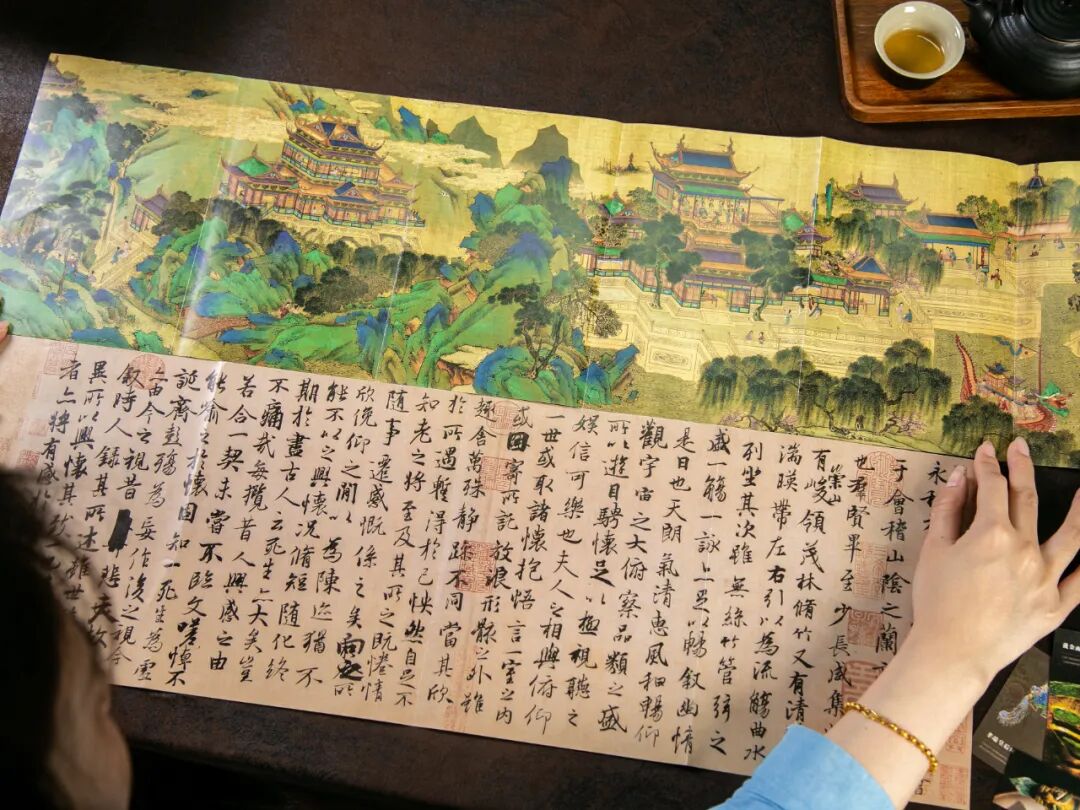 永和
于會稽山陰之蘭
也羣賢畢至少長咸集
有崇山峻領茂林脩竹又有清
湍暎帶左右引以為流觴曲水
列坐其次雖無絲竹管弦之
盛一觴一詠亦足以暢敘幽情
是日也天朗氣清惠風和暢仰
觀宇宙之大俯察品類之盛
所以遊目騁懷足以極視聽之
娛信可樂也夫人之相與俯仰
一世或取諸懷抱悟言一室之內
或因寄所託放浪形骸之外雖
趣舍萬殊靜躁不同當其欣
於所遇暫得於己怏然自足不
知老之將至及其所之既惓情
隨事遷感慨係之矣向之所
欣俛仰之間以為陳迹猶不
能不以之興懷況脩短隨化終
期於盡古人云死生亦大矣豈
不痛哉每攬昔人興感之由
若合一契未嘗不臨文嗟悼不
能喻之於懷固知一死生為虛
誕齊彭殤為妄作後之視今
亦由今之視昔悲夫故
敘時人錄其所述雖世
異所以興懷其致一
者亦將有感於